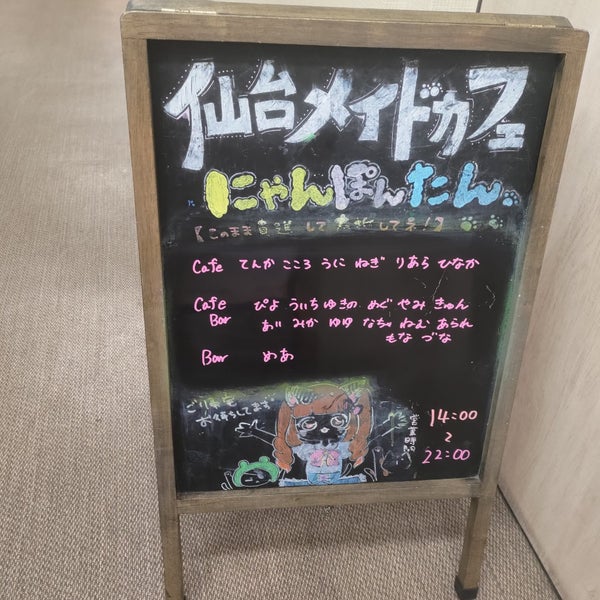 仙台メイドカフェ
にゃんぽんたん
【このまま直進して右折してネ！】
Cafe てんか こころ うに ねぎ りあら ひなか
Cafe ぴよ ういち ゆきの めぐ やみ きゅん
Bar あい みか ゆゆ なちゃ ねむ あられ
もな づな
Bar めあ
お待ちしてます
営業時間
14:00
〜
22:00